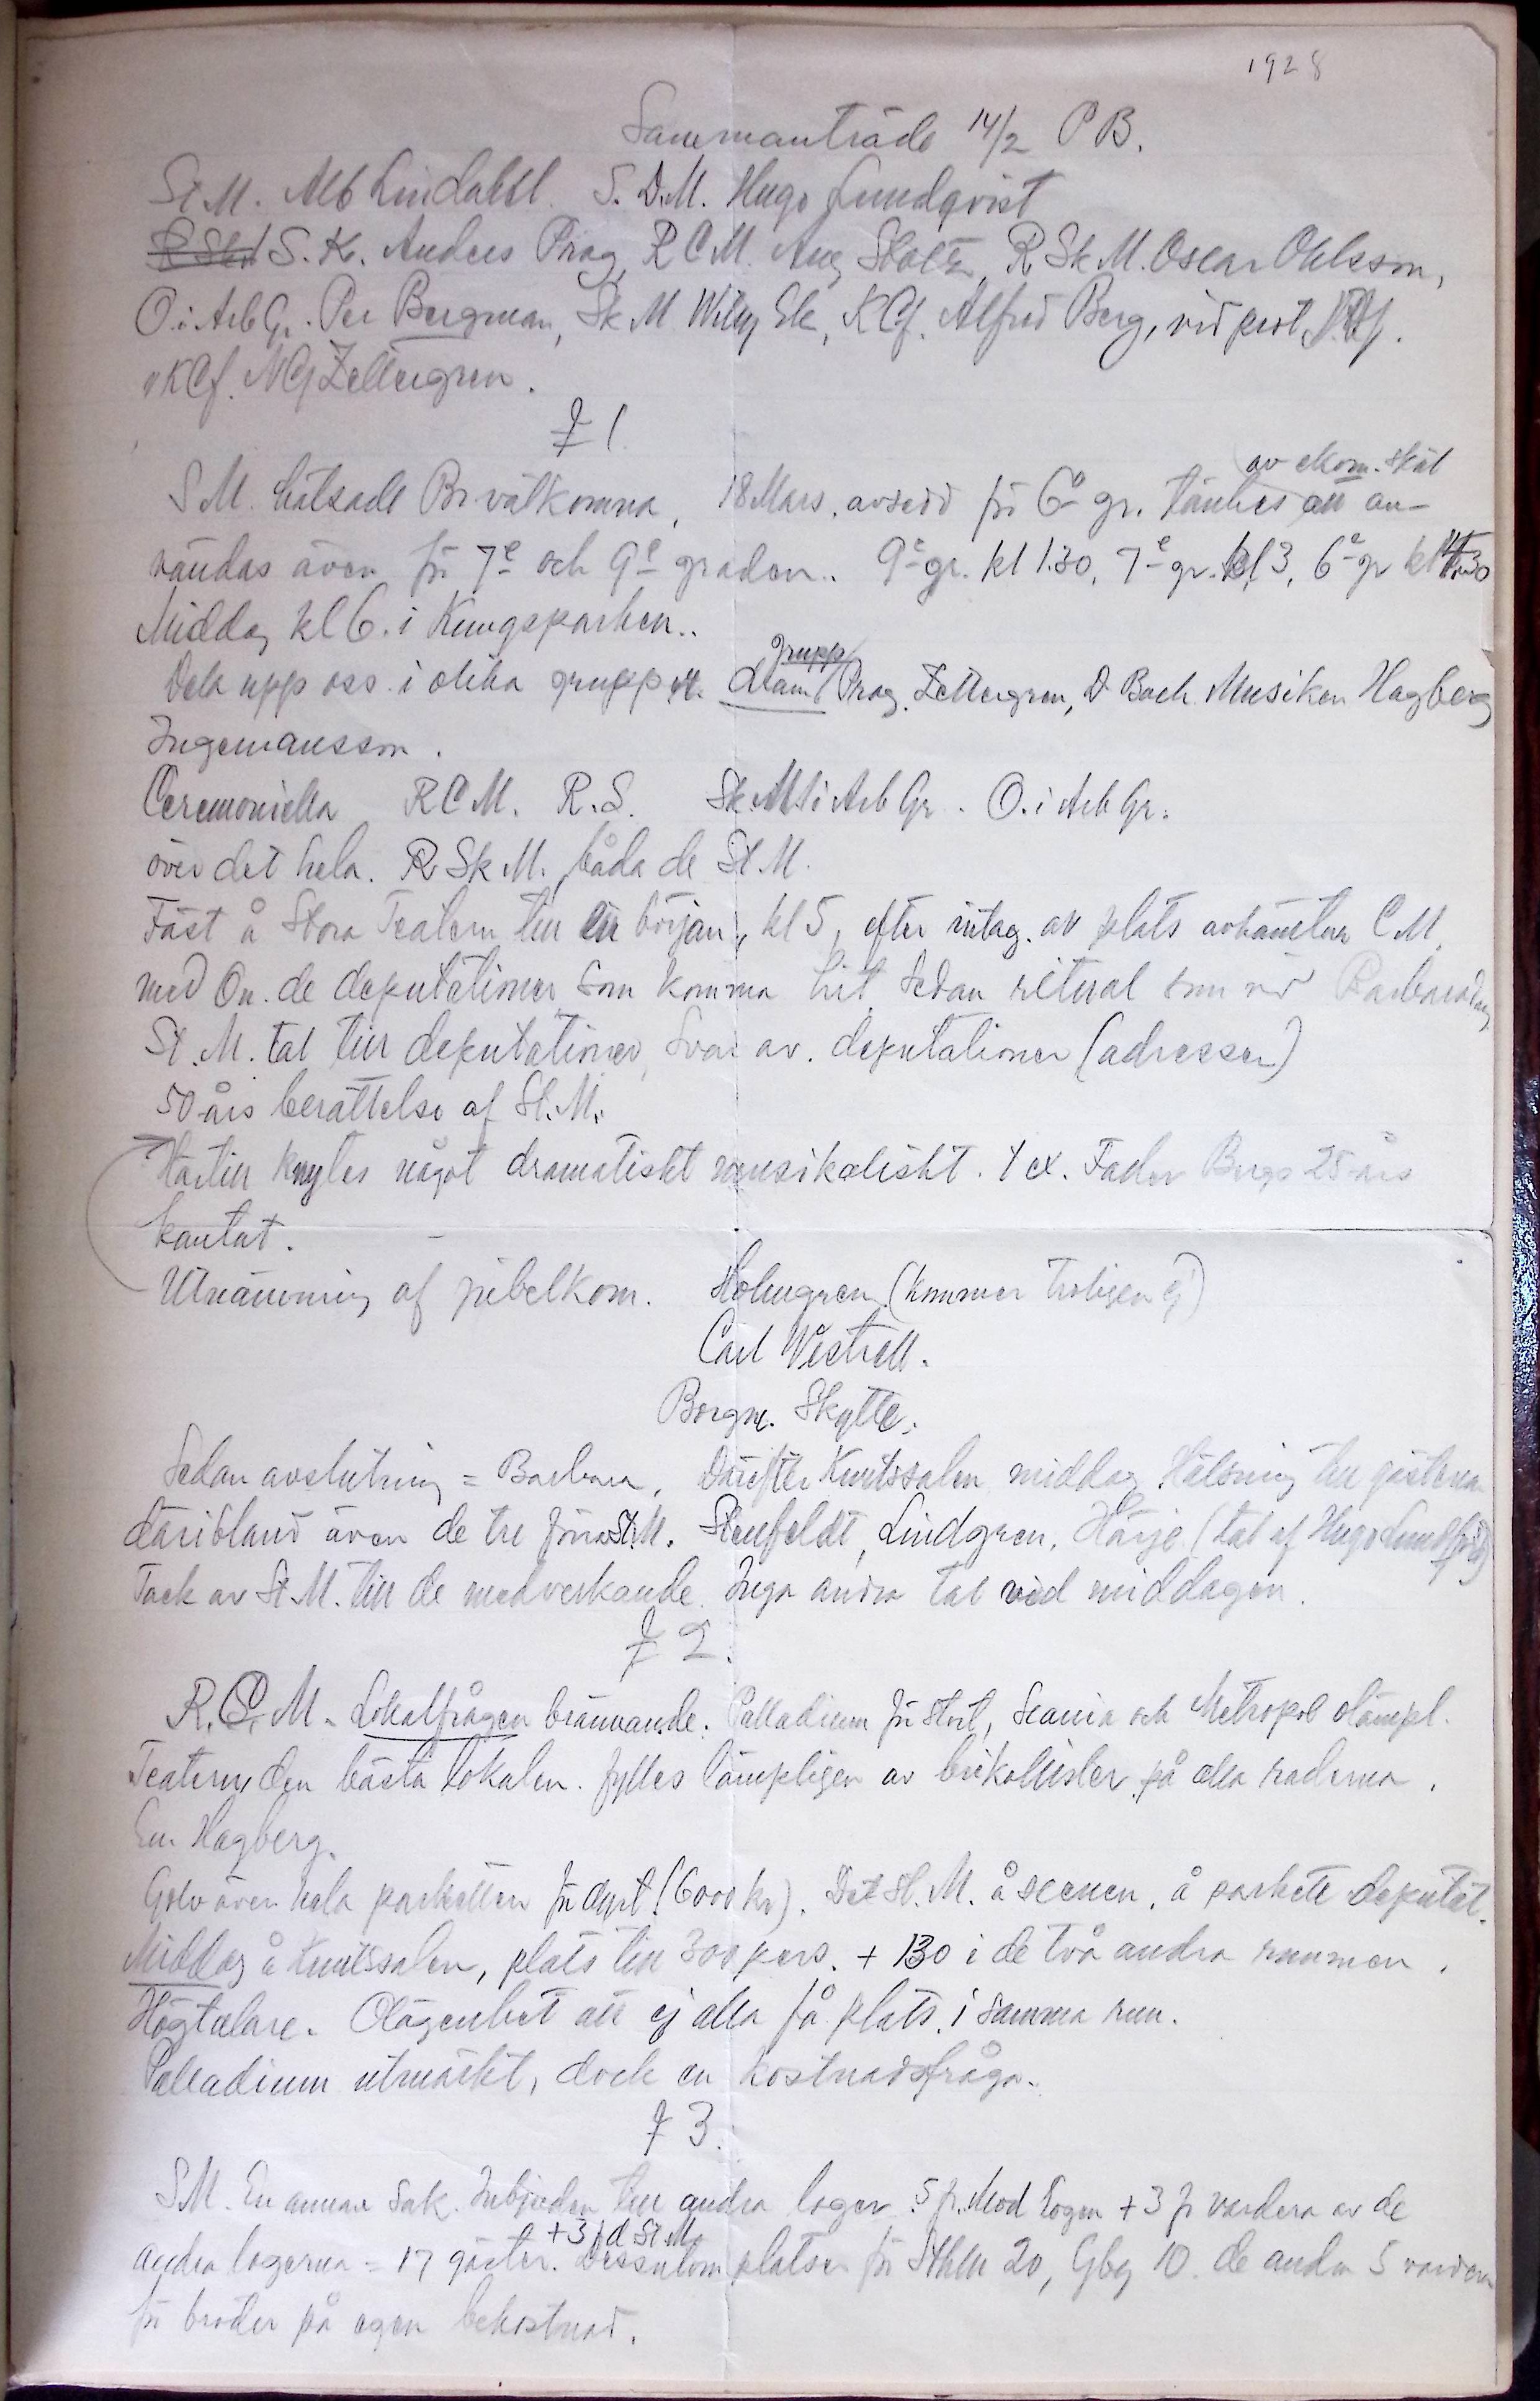 1928
Sammanträde 14/2 P B.
St M. Alb Lindahl. S. D.M. Hugo Lundqvist
S. K. Anders Prag, R C M. Aug Stoltz, R Sk M. Oscar Ohlsson,
O. i Arb Gr. Per Bergman, Sk M Willy Ek, K Cf. Alfred Berg, vid prot
v K Cf. N G Zettergren.
§ 1
av ekon. skäl
S M. hälsade Br. välkomna, 18 Mars, avsedd för 6e gr. tänkes att an-
vändas även för 7e och 9e graden. 9e gr. kl 1.30, 7e gr. kl 3, 6e gr kl 4.30
Middag kl 6. i Kungsparken..
grupp
Dela upp oss i olika grupper. dram/ Prag. Zettergren, D Bach. Musiken Hagberg
Ingemansson.
Ceremoniella R C M. R. S. Sk M i Arb Gr. O. i Arb Gr.
över det hela. R Sk M. båda de St M.
Fäst å Stora Teatern till en början, kl 5, efter intag. av plats avhämtar C M.
med On. de deputationer som komma hit. Sedan ritual som vid Barbaradag
St. M. tal till deputationer, Svar av. deputationer (adresser)
50-års berättelse af St. M.
Härtill knytes något dramatiskt musikaliskt. t ex. Fader Bergs 25-års
kantat.
Utnämning af jubelkom. Holmgren (kommer troligen ej)
Carl Westrell.
Borgm. Skytte.
Sedan avslutning = Barbara. Därefter Knutssalen middag. Hälsning till gästerna
däribland även de tre förra St M. Stenfeldt, Lindgren, Härje (tal af Hugo Lundqvist)
Tack av St M. till de medverkande. Inga andra tal vid middagen.
§ 2.
R. C. M. Lokalfrågan brännande. Palladium för stort, Scania och Metropol olämpl.
Teatern, den bästa lokalen. fylles lämpligen av på alla raderna.
Hagberg.
Golv över hela parketten för dyrt! (6000 kr). Det St. M. å scenen, å parkett deputat.
Middag å Knutssalen, plats till 300 pers. + 130 i de två andra rummen.
Högtalare. Olägenhet att ej alla få plats i samma rum.
Palladium utmärkt, dock en kostnadsfråga.
§ 3.
S M. En annan sak. Inbjuden till andra loger. 5 fr. Mod logen + 3 fr vardera av de
+ 3 f d St M.
andra logerna = 17 gäster. Dessutom platser för Sthlm 20, Gbg 10. de andra 5 vardera
för bröder på egen bekostnad.